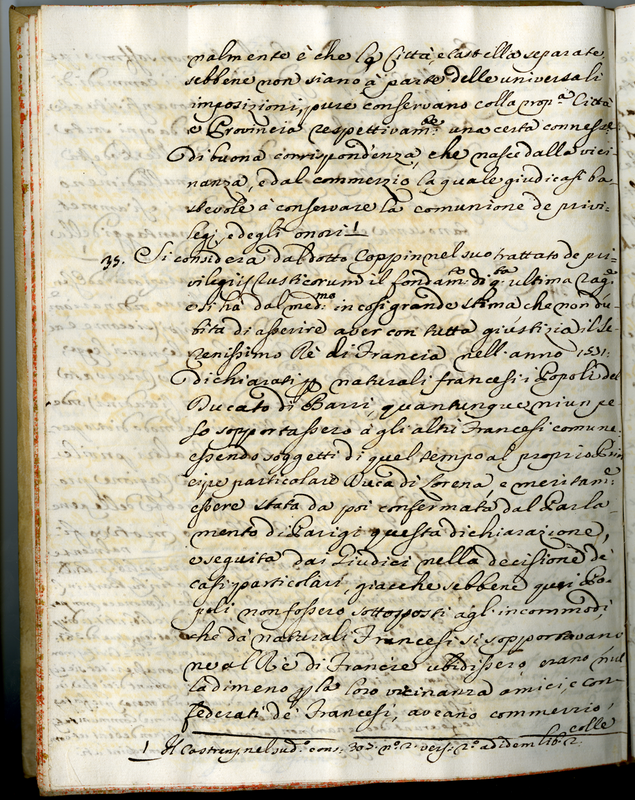 nalmente è che le Città e castella separate,
sebbene non siano à parte delle universali
imposizioni, pure conservano colla prop.ª Città
e Provincia respettivam.te una certa connes
di buona corrispondenza, che nasce dalla vici-
nanza, e dal commerzio la quale giudicasi ba-
stevole à conservare la comunione de privi-
legi, e degli onori. 1
35. Si considera dal dotto Coppin nel suo trattato de pri-
vilegijs rusticorum il fondam.to di q.sta ultima rag.e
e si hà dal med.mo in così grande stima che non du-
bita di asserire aver con tutta giustizia il Se-
renissimo Rè di Francia nell'anno 1531:
dichiarati p naturali francesi i Popoli del
Ducato di Barri, quantunque niun pe-
so sopportassero à gli altri Francesi comune
essendo soggetti di quel tempo al proprio Prin
cipe particolare Duca di Lorena e meritam.e
essere stata da poi confermata dal Parla-
mento di Parigi questa dichiarazione,
eseguita dai Giudici nella decisione de
casi particolari, giacche sebbene quei Po-
poli non fossero sottoposti agl'incommodi,
che da naturali Francesi si sopportavano
ne al Rè di Francia ubidissero, erano nul
ladimeno p la loro vicinanza amici, e con
federati de Francesi, aveano commerzio,
colle
1 Il Castrens. nel sud.º cons. 30. n.º 2. vers. 2.º ad idem lib. 2.